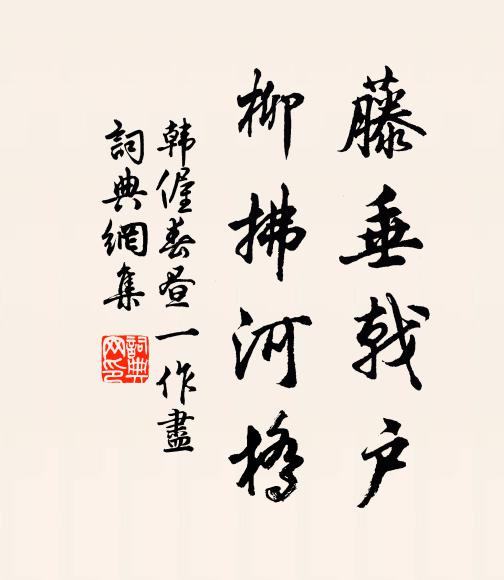 藤垂戟户
柳拂河橋
韩偓春昼一作盡
詞典網集
詞典网印